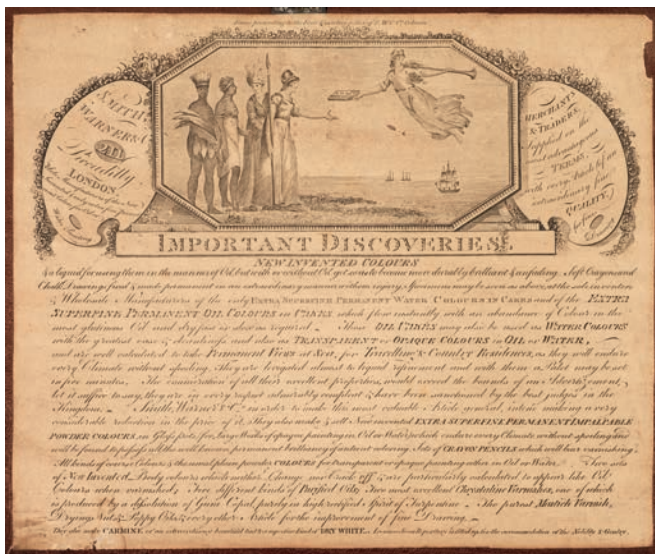 SMITH
WARNER & Co
211
Piccadilly
LONDON
MERCHANTS
& TRADERS
Supplied on the
most advantageous
TERMS,
with every Article of an
extraordinary fine
QUALITY,
for fine
Drawing
IMPORTANT DISCOVERIES!
NEW INVENTED COLOURS
& a liquid for using them in the manner of Oil, but with or without Oil yet so as to become more durably brilliant & unfading. Soft Crayon and
Chalk Drawings fixed & made permanent in an extraordinary manner without injury. Specimens may be seen as above, at the sole inventors
& Wholesale Manufacturers of the only EXTRA SUPERFINE PERMANENT WATER COLOURS IN CAKES and of the EXTRA
SUPERFINE PERMANENT OIL COLOURS in CAKES which flow instantly with an abundance of Colour in the
most glutinous Oil and dry fast or slow as required. These OIL CAKES may also be used as WATER COLOURS
with the greatest ease & cleanliness and also as TRANSPARENT or OPAQUE COLOURS in OIL or WATER,
and are well calculated to take Permanent Views at Sea, for Travelling & Country Residences, as they will endure
every Climate without spoiling. They are levigated almost to liquid refinement and with them a Palet may be set
in five minutes. The enumeration of all their excellent properties, would exceed the bounds of an Advertisement,
let it suffice to say, they are in every respect admirably compleat & have been sanctioned by the best judges in the
Kingdom. Smith, Warner & Co. in order to make this most valuable Article general, intend making a very
considerable reduction in the price of it. They also make & sell New invented EXTRA SUPERFINE PERMANENT IMPALPABLE
POWDER COLOURS, in Glass pots for large Works of opaque painting in Oil or Water which endure every Climate without spoiling and
will be found to possess all the well known permanent brilliancy of without altering. Sets of CRAYON PENCILS which will bear varnishing.
All kinds of scarce Colours & the usual plain powder COLOURS for transparent or opaque painting either in Oil or Water. Two sets
of New Invented Body colours which neither Change nor Crack off & are particularly calculated to appear like Oil
Colours when varnished; Two different kinds of Purified Oils; Two most excellent Chrystaline Varnishes, one of which
is produced by a dissolution of Gum Copal, purely in high rectified Spirit of Turpentine. The purest Mastich Varnish,
Drying Nut & Poppy Oils & every other Article for the improvement of fine Drawing.
They also make CARMINE of an extraordinary beautiful tint & DRY WHITE. for the accommodation of the Nobility & Gentry.